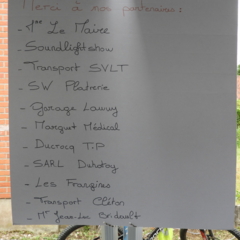 Merci à nos partenaires :
- Mme Le Maire
- Soundlightshow
- Transport SVLT
- SW Platrerie
- Garage Lauwy
- Marquet Médical
- Ducrocq T.P
- SARL
- Les Frangines
- Transport Cléton
- Mr Jean-Luc Bridault